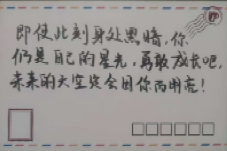 即使此刻身处黑暗，你
仍是自己的星光，勇敢成长吧，
未来的天空定会因你而明亮！